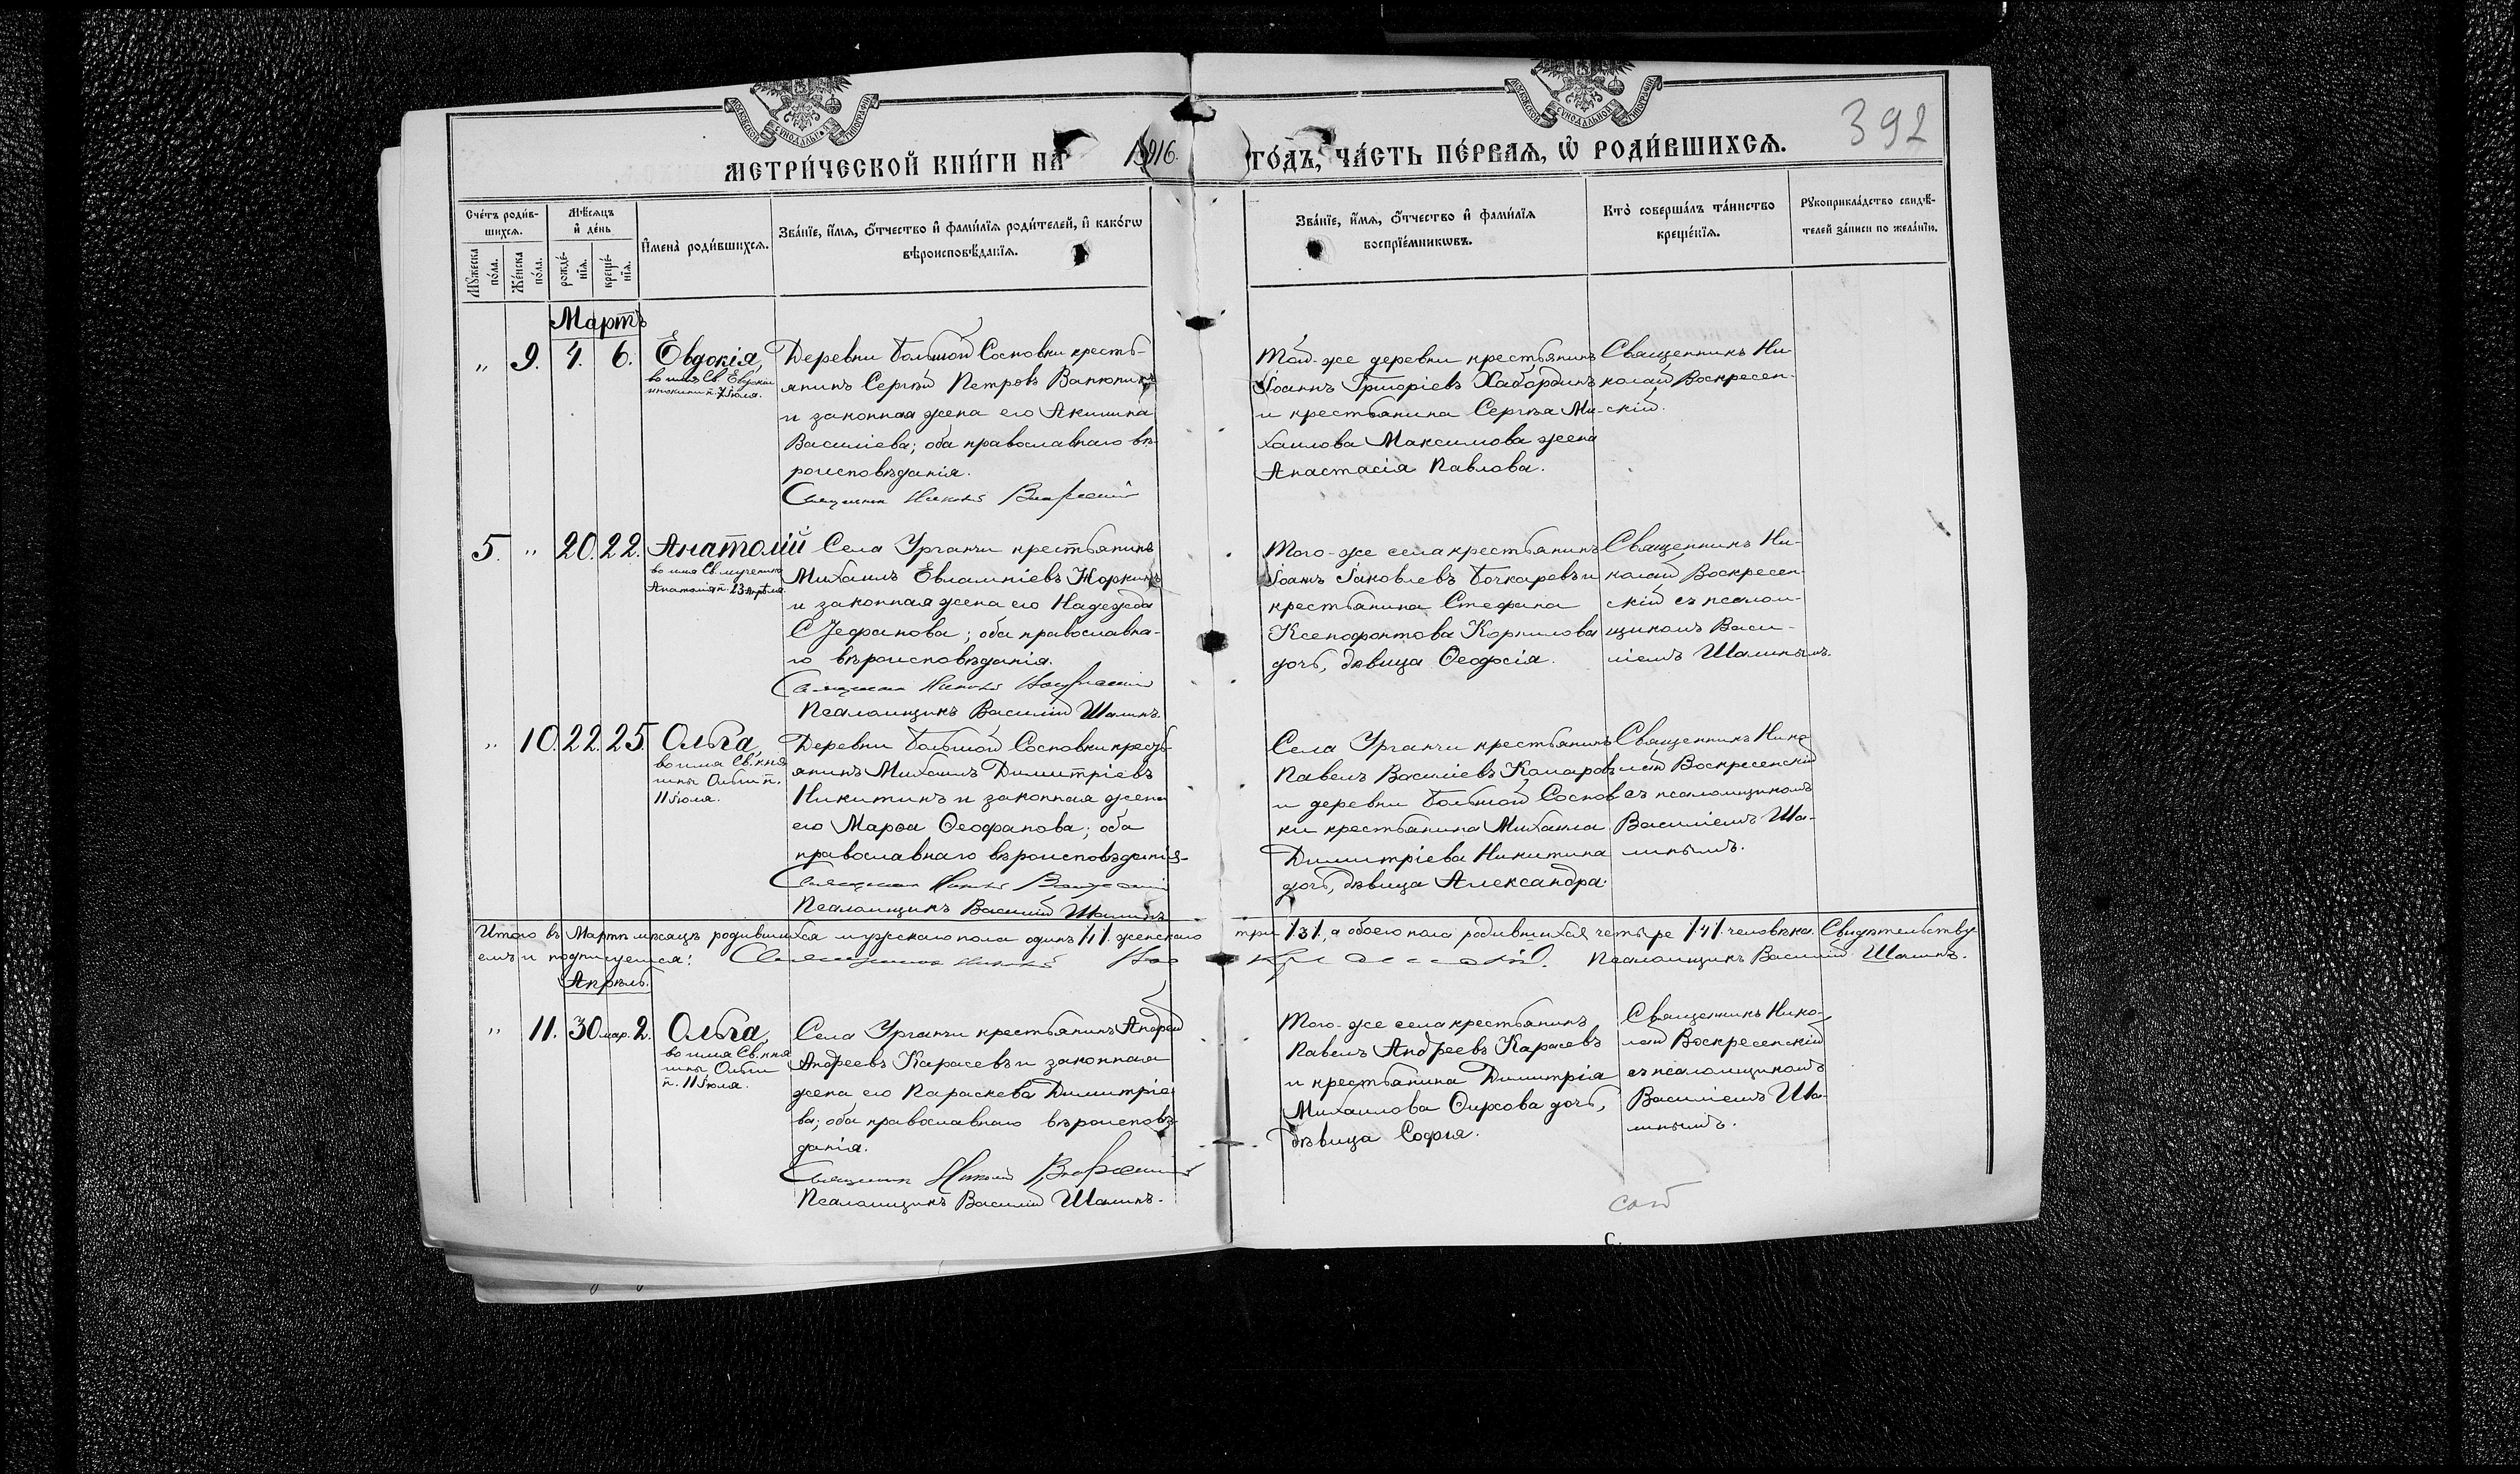 МОСКОВСКОЙ СѴНОДАЛЬНОЙ ТИПОГРАФІИ
МОСКОВСКОЙ СѴНОДАЛЬНОЙ ТИПОГРАФІИ
392
МЕТРИ́ЧЕСКОЙ КНИ́ГИ НА 1916. ГО́ДЪ, ЧА́СТЬ ПЕ́РВАЯ, Ѡ РОДИ́ВШИХСЯ.
Сче́тъ роди́в-
шихся.
Мѣ́сяцъ
и҆ де́нь
Мꙋ́жеска по́ла.
Же́нска по́ла.
рожде́-
нїя.
креще́-
нїя.
И҆мена̀ роди́вшихся.
Зва́нїе, и҆́мя, ѻ҆́тчество и҆ фами́лїя роди́телей, и҆ како́гѡ
вѣроисповѣ́данїя.
Зва́нїе, и҆́мя, ѻ҆́тчество и҆ фами́лїя
воспрїе́мникѡвъ.
Кто̀ соверша́лъ та́инство
креще́нїя.
Рꙋкоприкла́дство свидѣ́-
телей за́писи по жела́нїю.
Мартъ
„ 9. 4. 6. Евдокія,
во имя Св. Евдокіи
инокини п. 7 Іюля.
Деревни Большой Сосновки кресть-
янинъ Сергѣй Петровъ Ванюнинъ
и законная жена его Акилина
Василіева; оба православнаго вѣ-
роисповѣданія.
Священникъ Николай Воскресенскій
Той-же деревни крестьянинъ
Іоаннъ Григоріевъ Хабординъ
и крестьянина Сергѣя Ми-
хаилова Максимова жена
Анастасія Павлова.
Священникъ Ни-
колай Воскресен-
скій.
5. „ 20. 22. Анатолій
во имя Св. мученика
Анатолія п. 23 Апрѣля.
Села Урганчи крестьянинъ
Михаилъ Евлампіевъ Жоркинъ
и законная жена его Надежда
Стефанова; оба православна-
го вѣроисповѣданія.
Священникъ Николай Воскресенскій
Псаломщикъ Василій Шалинъ.
Того-же села крестьянинъ
Іоаннъ Іаковлевъ Бочкаревъ и
крестьянина Стефана
Ксенофонтова Корнилова
дочь, дѣвица Ѳеодосія.
Священникъ Ни-
колай Воскресен-
скій съ псалом-
щикомъ Васи-
ліемъ Шалинымъ.
„ 10. 22. 25. Ольга,
во имя Св. кня
гини Ольги п.
11 Іюля.
Деревни Большой Сосновки кресть-
янинъ Михаилъ Димитріевъ
Никитинъ и законная жена
его Марѳа Ѳеофанова; оба
православнаго вѣроисповѣданія.
Священникъ Николай Воскресенскій
Псаломщикъ Василій Шалинъ
Села Урганчи крестьянинъ
Павелъ Василіевъ Комаровъ
и деревни Большой Соснов
ки крестьянина Михаила
Димитріева Никитина
дочь, дѣвица Александра.
Священникъ Нико
лай Воскресенскій
съ псаломщикомъ
Василіемъ Ша-
линымъ.
Итого въ Мартѣ мѣсяцѣ родившихся мужскаго пола одинъ /1/. женскаго три /3/., а обоего пола родившихся четыре /4/. человѣка. Свидѣтельству
емъ и подписуемся: Священникъ Николай Воскресенскій. Псаломщикъ Василій Шалинъ.
Апрѣль.
„ 11. 30 мар. 2. Ольга,
во имя Св. кня
гини Ольги
п. 11 Іюля.
Села Урганчи крестьянинъ Андрей
Андреевъ Карасевъ и законная
жена его Параскева Димитріе-
ва; оба православнаго вѣроисповѣ-
данія.
Священникъ Николай Воскресенскій
Псаломщикъ Василій Шалинъ.
Того-же села крестьянинъ
Павелъ Андреевъ Карасевъ
и крестьянина Димитрія
Михаилова Фирсова дочь,
дѣвица Софія.
Священникъ Нико-
лай Воскресенскій
съ псаломщикомъ
Василіемъ Ша-
линымъ.
С.